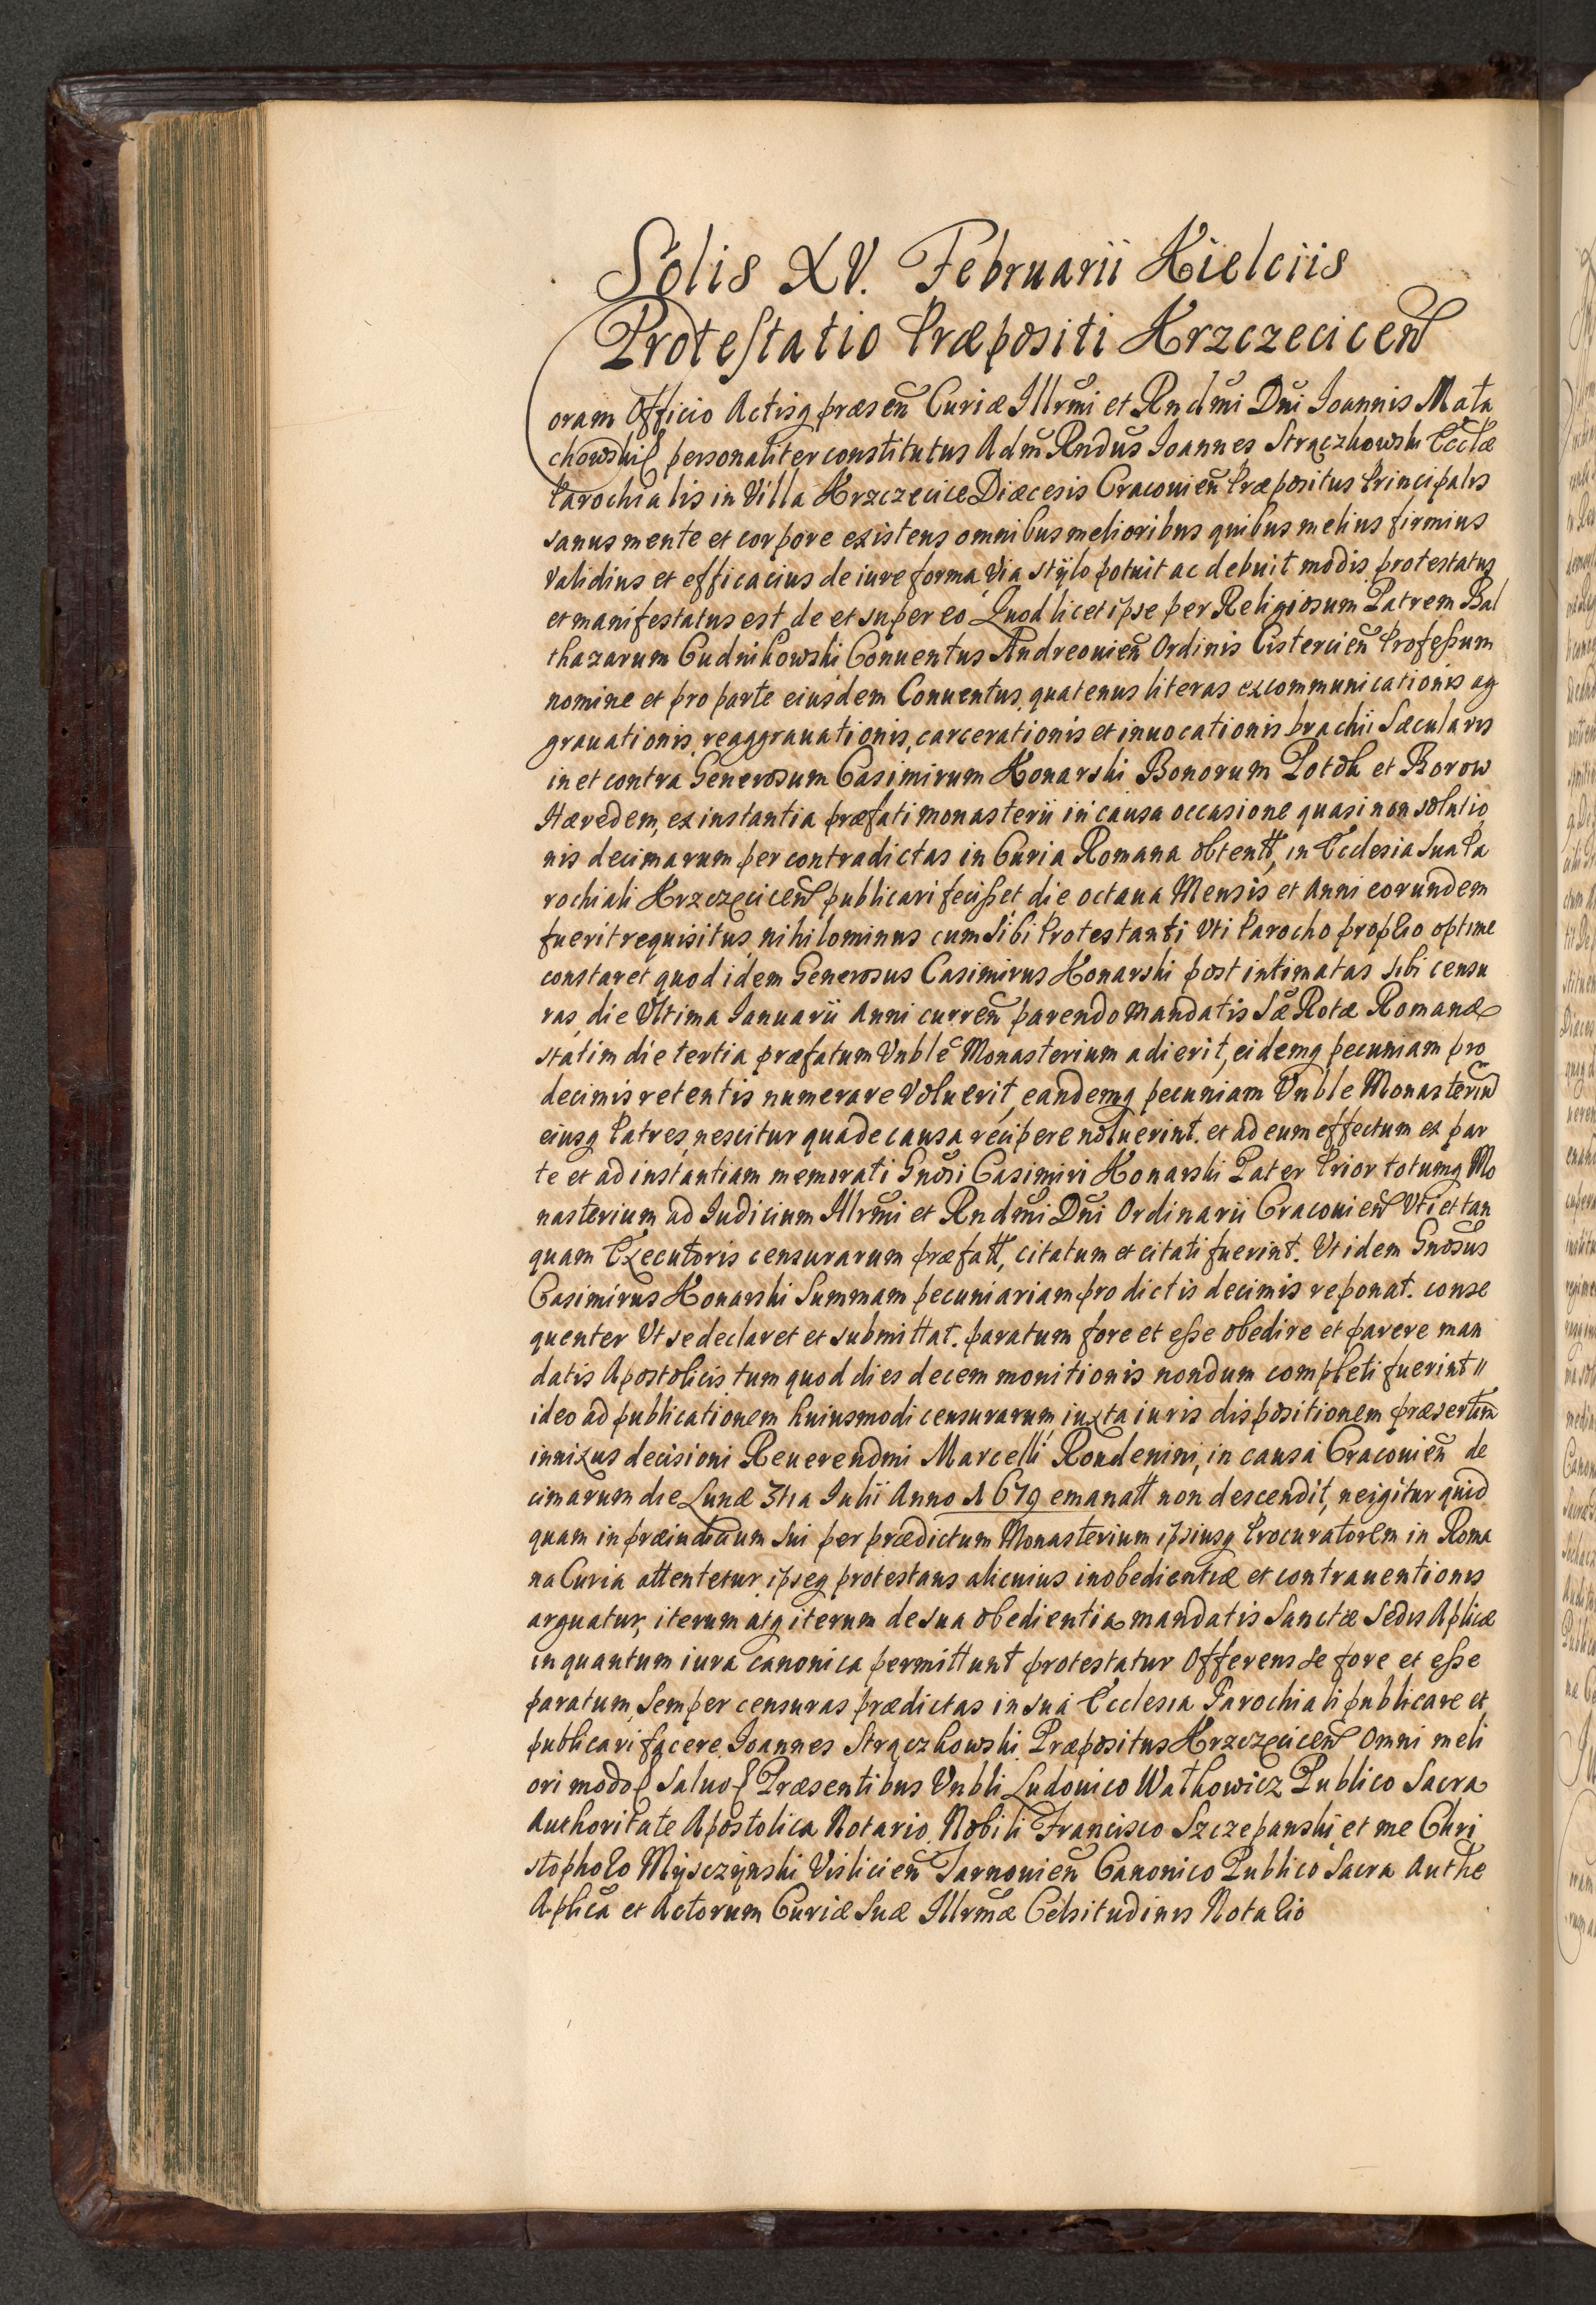 Solis XV. Februarii Kielciis
Protestatio Præpositi Krzczecicen̄
Coram Officio Actisq præsen̄ Curiæ Illrm̄i et Rndm̄i Dn̄i Ioannis Mała
chowski personaliter constitutus Adm̄ Rndus Ioannes Strączkowski Eccl̄æ
Parochialis in Villa Krzczecice Diæcesis Cracouien̄ Præpositus Principalis
sanus mente et corpore existens omnibus melioribus quibus melius firmius
validius et efficacius de iure forma, via stÿlo potuit ac debuit modis protestatus
et manifestatus est de et super eo Quod licet ipse per Religiosum Patrem Bal
thazarum Cudnikowski Conuentus Andreouien̄ Ordinis Cistercien̄ Professum
nomine et pro parte eiusdem Conuentus, quatenus literas excommunicationis ag
grauationis, reaggrauationis, carcerationis et inuocationis brachii Sæcularis
in et contra Generosum Casimirum Konarski Bonorum Potok et Borow
Hæredem, ex instantia præfati monasterii in causa occasione quasi non solutio
nis decimarum per contradictas in Curia Romana obtentt, in Ecclesia sua Pa
rochiali Krzczęcicen̄ publicari fecisset die octaua Mensis et Anni eorundem
fuerit requisitus, nihilominus cum sibi Protestanti Vti Parocho proprio optime
constaret quod idem Generosus Casimirus Konarski post intimatas sibi censu
ras, die Vltima Ianuarii Anni curren̄ parendo mandatis Sæ Rotæ Romanæ
statim die tertia præfatum Vnble Monasterium adierit, eidemq pecuniam pro
decimis retentis numerare Voluerit, eandemq pecuniam Vnble Monasteriū
eiusq Patres, nescitur qua de causa recipere noluerint. et ad eum effectum ex par
te et ad instantiam memorati Gnosi Casimiri Konarski Pater Prior totumq Mo
nasterium ad Iudicium Illrm̄i et Rndm̄i Dn̄i Ordinarii Cracouien̄ Vti et tan
quam Executoris censurarum præfatt, citatum et citati fuerint. Vt idem Gnosus
Casimirus Konarski Summam pecuniariam pro dictis decimis reponat. conse
quenter Vt se declaret et submittat. paratum fore et esse obedire et parere man
datis Apostolicis, tum quod dies decem monitionis nondum completi fuerint //
ideo ad publicationem huiusmodi censurarum, iuxta iuris dispositionem præsertim
innixus decisioni Reuerendmi Marcelli Rondenini, in causa Cracouien̄ de
cimarum die Lunæ 3tia Iulii Anno 1679 emanatt non descendit, ne igitur quid
quam in præiudicium sui per prædictum Monasterium ipsiusq Procuratorem in Roma
na Curia attentetur, ipseq protestans alicuius inobedientiæ et contrauentionis
arguatur, iterum atq iterum de sua obedientia mandatis Sanctæ Sedis Aplicæ
in quantum iura canonica permittunt protestatur Offerens se fore et esse
paratum, semper censuras prædictas in sua Ecclesia Parochiali publicare et
publicari facere. Ioannes Strączkowski Præpositus Krzczęcicen̄ omni meli
ori modo saluo Præsentibus Vnbli Ludouico Watkowicz Publico Sacra
Authoritate Apostolica Notario, Nobili Francisco Szczepanski et me Chri
stophoro Mÿsczÿnski Vislicien̄ Tarnouien̄ Canonico Publico Sacra Authe
Aplica et Actorum Curiæ Suæ Illrmæ Celsitudinis Notario